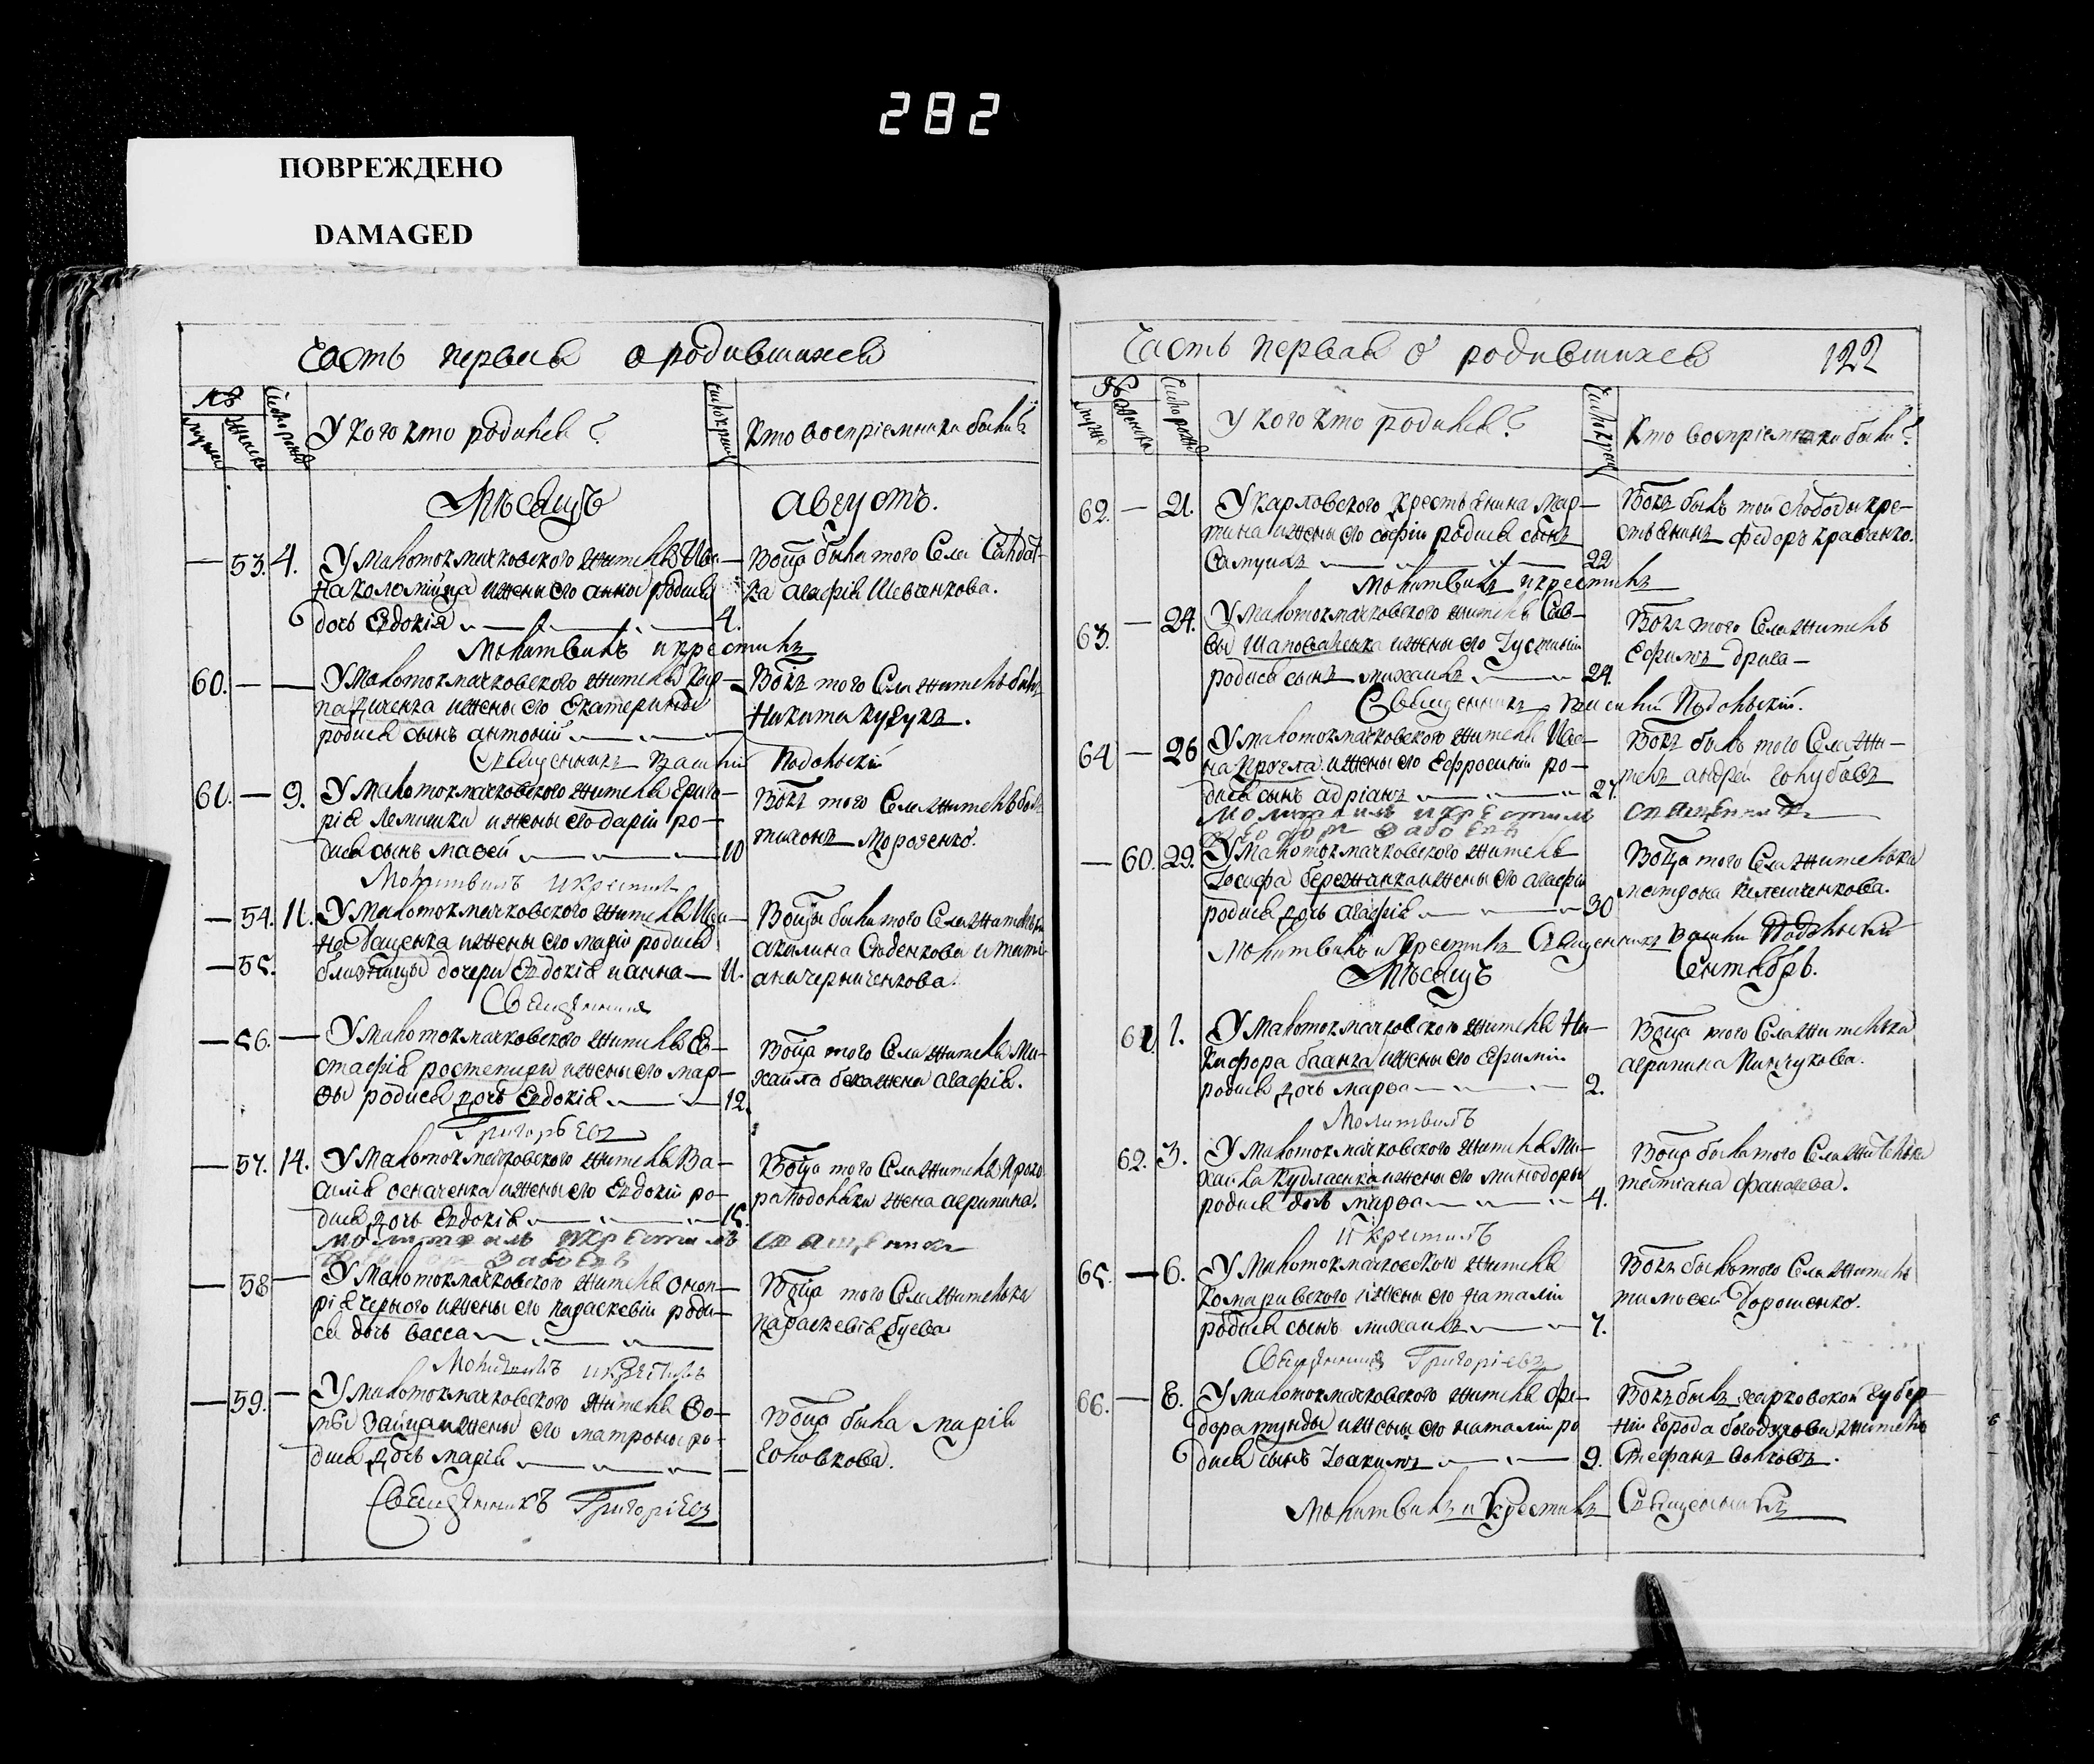 282
ПОВРЕЖДЕНО
DAMAGED
Часть первая о родившихся
№
мужеск
женска
Число рожд
У кого кто родился?
Число крещ
Кто восприемники были?
Мѣсяцъ Августъ.
— 53. 4. У малотокмачковского жителя Ива—
на коломійца и жены его анны родися
дочь Евдокія 4.
Воспр была того Села Салдат-
ка агафія Шевченкова.
Молитвилъ и крестилъ
60. — — У малотокмачковского жителя Кар—
па дученка и жены его Екатерины
родися сынъ антоній
Вокъ того Села житель былъ
Никита кукукъ.
Священникъ Василій Подольскій
61. — 9. У малотокмачковского жителя Григо—
рія Лемишки и жены его Даріи ро—
дися сынъ мавей 10
Вокъ того Села житель былъ
тихонъ Морозенко.
Молитвилъ и крестилъ
— 54. 11. У малотокмачковского жителя Ива—
на Ващенка и жены его маріи родися
— 55. близницы дочери Евдокія и анна — 11.
акилина Сиденкова и тати
ана черниченкова.
Священникъ
— 56. — У малотокмачковского жителя Ев—
стафія ростепири и жены его мар—
ѳы родися дочь Евдокія 12.
Воспр того Села жителя Ми-
хайла бека жена агафія.
Григорьевъ
— 57. 14. У малотокмачковского жителя Ва—
силія осначенка и жены его Евдокіи ро—
дися дочь Евдокія 15.
Воспр того Села жителя Прохо
ра подольки жена агрипина.
молитвилъ и крестилъ священникъ
— 58 — У малотокмачковского жителя Оноп—
рія черного и жены его параскевіи роди—
ся дочь васса
Воспр того Села жителька
параскевія буева.
Молитвилъ и крестилъ
— 59. — У малотокмачковского жителя Ѳо—
мы Зайца и жены его матроны ро-
дися дочь марія
Воспр была марія
головкова.
Священникъ Григоріевъ
Часть первая о родившихся 122
№
мужс
женска
Число рожд
У кого кто родился?
Число крещ
Кто восприемники были?
62. — 21. У карловского крестьянина Мар—
тина и жены его софіи родися сынъ
Самуилъ 22
Вокъ былъ той слободы кре—
стьянинъ федоръ кравченко.
Молитвилъ и крестилъ
63. — 24. У малотокмачковского жителя Сав—
вы Шаповаленка и жены его Іустиніи
родися сынъ михаилъ 24.
Вокъ того Села житель
Ефимъ дрига —
Священникъ Василій Подольскій.
64 — 26 У малотокмачковского жителя Ива—
на прочла и жены его Ефросиніи ро—
дися сынъ адріанъ 27.
Вокъ былъ того Села жи—
тель андрей голубовъ
молитвилъ и крестилъ священникъ
— 60. 29. У малотокмачковского жителя
Іосифа бережанка и жены его агафіи
родися дочь агафія 30
Воспр того Села жителька
матрона келешенкова.
Молитвилъ и Крестилъ Священникъ Василій Подольскій
Мѣсяцъ Сентябрь.
61. 1. У малотокмачковского жителя Ни—
кифора баанга и жены его Ефиміи
родися дочь марѳа 2.
Воспр того Села жителька
агрипина Пинчукова.
Молитвилъ
62. 3. У малотокмачковского жителя Ми—
хайла Кудласика и жены его минодоры
родися дочь марѳа 4.
Воспр была того Села жителька
татіана фанасева.
и крестилъ
65. — 6. У малотокмачковского жителя
комаривского и жены его наталіи
родися сынъ михаилъ 7.
Вокъ былъ того Села житель
тимоѳей дорошенко.
Священникъ Григоріевъ
66. — 8. У малотокмачковского жителя Фе—
дора тунды и жены его наталіи ро
дися сынъ Іоакимъ 9.
Вокъ былъ харковской губер—
ніи города богодухова житель
Стефанъ волковъ.
Молитвилъ и Крестилъ Священникъ